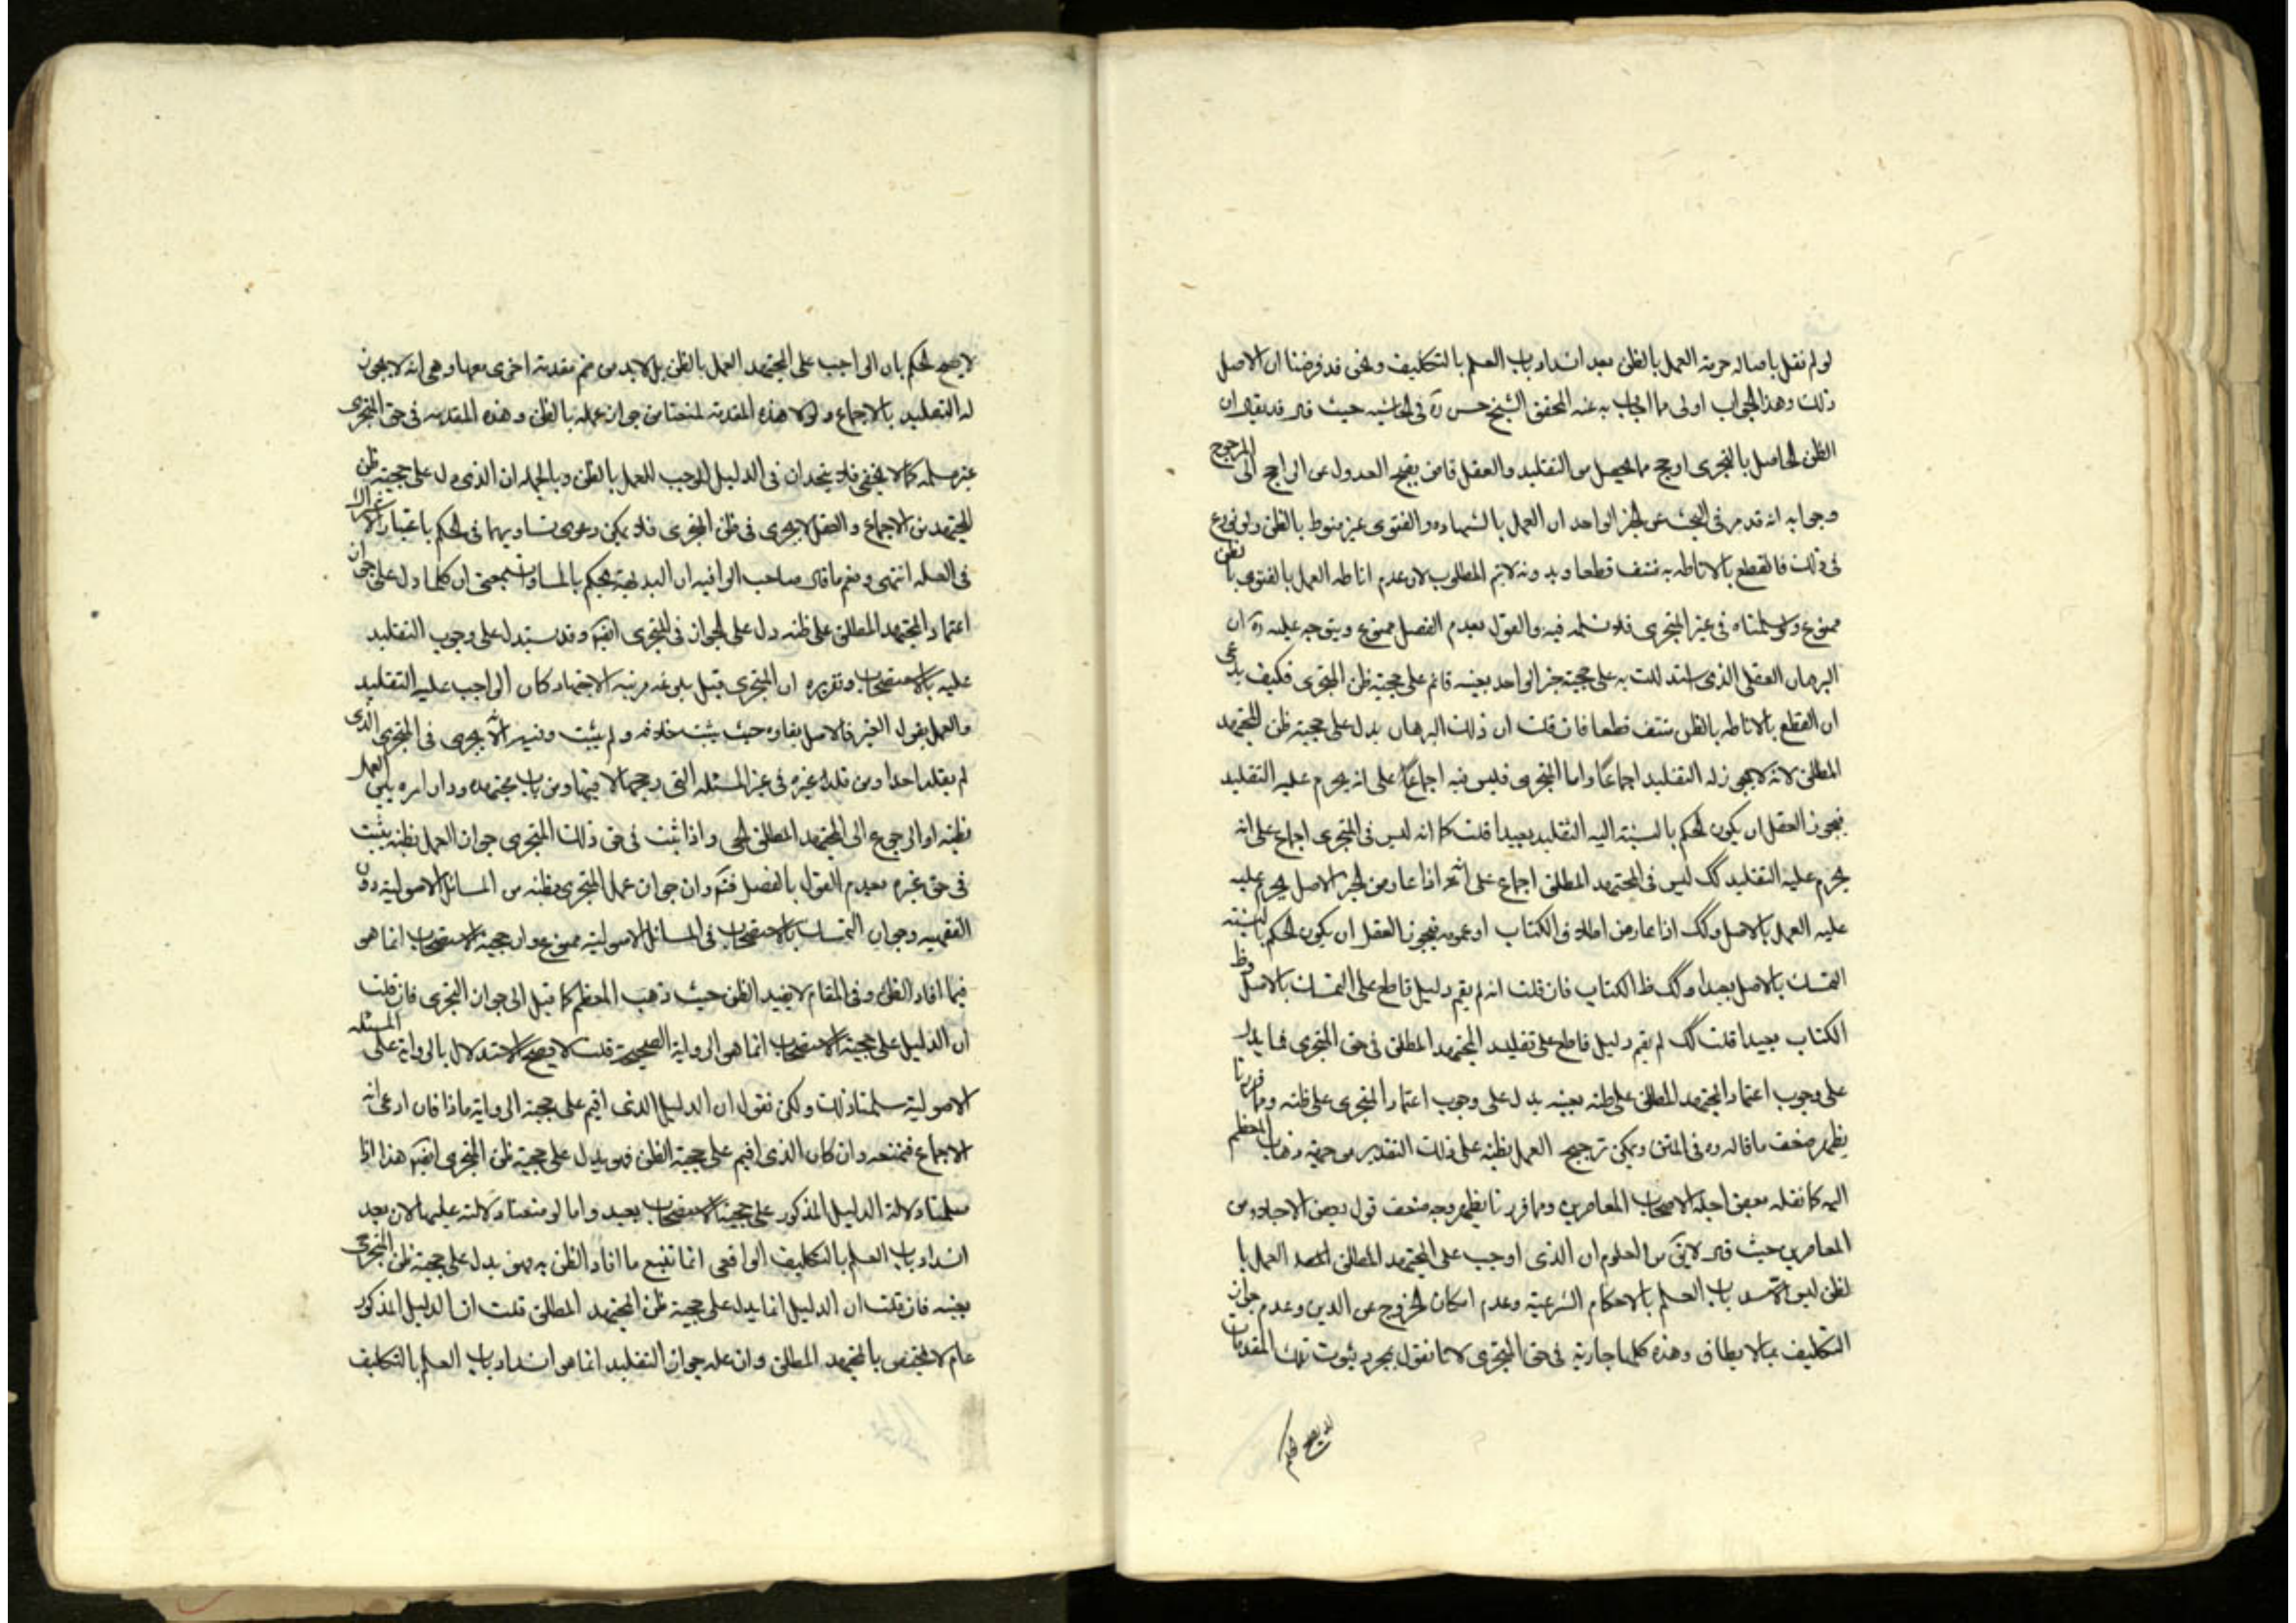 لو لم نقل باصالة حرمة العمل بالظن بعد انسداد باب العلم بالتكليف ونحن قد فرضنا ان الاصل
ذلك وهذا الجواب اولى مما اجاب به عنه المحقق الشيخ حسن ره فى الحاشيه حيث قال قد يقال ان
الظن الحاصل بالتجزى ارجح مما يحصل من التقليد والعقل قاض بقبح العدول عن الراجح الى المرجوح
وجوابه انه قد مر فى البحث عن الخبر الواحد ان العمل بالشهاده والفتوى غير منوط بالظن ولو نوزع
فى ذلك فالقطع بالاناطه به منتف قطعا وبدونه لا يتم المطلوب لان عدم اناطه العمل بالفتوى بالظن
ممنوع ولو سلمناه فى غير المتجزى فلا نسلمه فيه والقول بعدم الفصل ممنوع ويتوجه عليه ره ان
البرهان العقلى الذى استدللت به على حجية خبر الواحد بعينه قائم على حجية ظن المتجزى فكيف يدعى
ان القطع بالاناطه بالظن منتف قطعا فان قلت ان ذلك البرهان يدل على حجية ظن المجتهد
المطلق لانه لا يجوز له التقليد اجماعًا واما المتجزى فليس فيه اجماعًا على انه يحرم عليه التقليد
فيجوز العقل ان يكون الحكم بالنسبة اليه التقليد بعيدا قلت كما انه ليس فى المتجزى اجماع على انه
يحرم عليه التقليد كك ليس فى المجتهد المطلق اجماع على انه اذا عارض الخبر الاصل يحرم عليه
عليه العمل بالاصل وكك اذا عارض اطلاق الكتاب او عمومه فيجوز العقل ان يكون الحكم بالنسبته
التمسك بالاصل بعيدا وكك ظ الكتاب فان قلت انه لم يقم دليل قاطع على التمسك بالاصل وظ
الكتاب بعيدا قلت كك لم يقم دليل قاطع على تقليد المجتهد المطلق فى حق المتجزى فما يدل
على وجوب اعتماد المجتهد المطلق على ظنه بعينه يدل على وجوب اعتماد المتجزى على ظنه ومما قررنا
يظهر ضعف ما قاله ره فى المتن ويمكن ترجيح العمل بظنه على ذلك التقدير من جهة ذهاب المعظم
اليه كما نقله بعض اجلة الاصحاب المعاصرين ومما قررنا يظهر وجه ضعف قول بعض الاجلاء من
المعاصرين حيث قال لا يق من المعلوم ان الذى اوجب على المجتهد المطلق العمل با
لظن ليس الا سد باب العلم بالاحكام الشرعية وعدم امكان الخروج عن الدين وعدم جواز
التكليف بما لا يطاق وهذه كلها جارية فى حق المتجزى لانا نقول بمجرد ثبوت تلك المقدمات
لا يصح الحكم
لا يصح الحكم بان الواجب على المجتهد العمل بالظن بل لا بد من ضم مقدمة اخرى معها وهى انه لا يجوز
له التقليد بالاجماع ولولا هذه المقدمة لمنعنا من جواز عمله بالظن وهذه المقدمه فى حق المتجزى
غير مسلمه كما لا يخفى فلا يتحدان فى الدليل الموجب للعمل بالظن وبالجمله ان الذى دل على حجية ظن
المجتهد من الاجماع والعقل لا يجرى فى ظن المتجزى فلا يمكن دعوى تساويهما فى الحكم باعتبار الاشتراك
فى العله انتهى ونعم ما قال صاحب الوافيه ان البديهة يحكم بالمساوات بمعنى ان كلما دل على جواز
اعتماد المجتهد المطلق على ظنه دل على الجواز فى المتجزى ايضا وقد يستدل على وجوب التقليد
عليه بالاستصحاب وتقريره ان المتجزى قبل بلوغه مرتبة الاجتهاد كان الواجب عليه التقليد
والعمل بقول الغير فالاصل بقاؤه حيث يثبت خلافه ولم يثبت وفيه انه لا يجرى فى المتجزى الذى
لم يقلد احدا ومن قلد غيره فى غير المسئله التى رجحها لا فيها ومن مات مجتهده ودار امره بين العمل
بظنه او الرجوع الى المجتهد المطلق الحى واذا ثبت فى حق ذلك المتجزى جواز العمل بظنه يثبت
فى حق غيره بعدم القول بالفصل وان جواز عمل المتجزى بظنه من المسائل الاصولية دون
الفقهيه وجواز التمسك بالاستصحاب فى المسائل الاصولية ممنوع وان حجية الاستصحاب انما هو
فيما افاد الظن وفى المقام لا يفيد الظن حيث ذهب المعظم كما قيل الى جواز التجزى فان قلت
ان الدليل على حجية الاستصحاب انما هو الرواية الصحيحة قلت لا يصح الاستدلال بالرواية على المسئله
الاصولية سلمنا ذلك ولكن نقول ان الدليل الذى اقيم على حجية الرواية ماذا فان ادعى انه
الاجماع فنمنعه وان كان الذى اقيم على حجية الظن فهو يدل على حجية ظن المتجزى ايضا هذا اذا
سلمنا دلالة الدليل المذكور على حجية الاستصحاب بعيد واما لو منعنا دلالته عليها لان بعد
انسداد باب العلم بالتكليف الواقعى انما نتبع ما افاد الظن به فهو يدل على حجية ظن المتجزى
بعينه فان قلت ان الدليل انما يدل على حجية ظن المجتهد المطلق قلت ان الدليل المذكور
عام لا يختص بالمجتهد المطلق وان عله جواز التقليد انما هو انسداد باب العلم بالتكليف